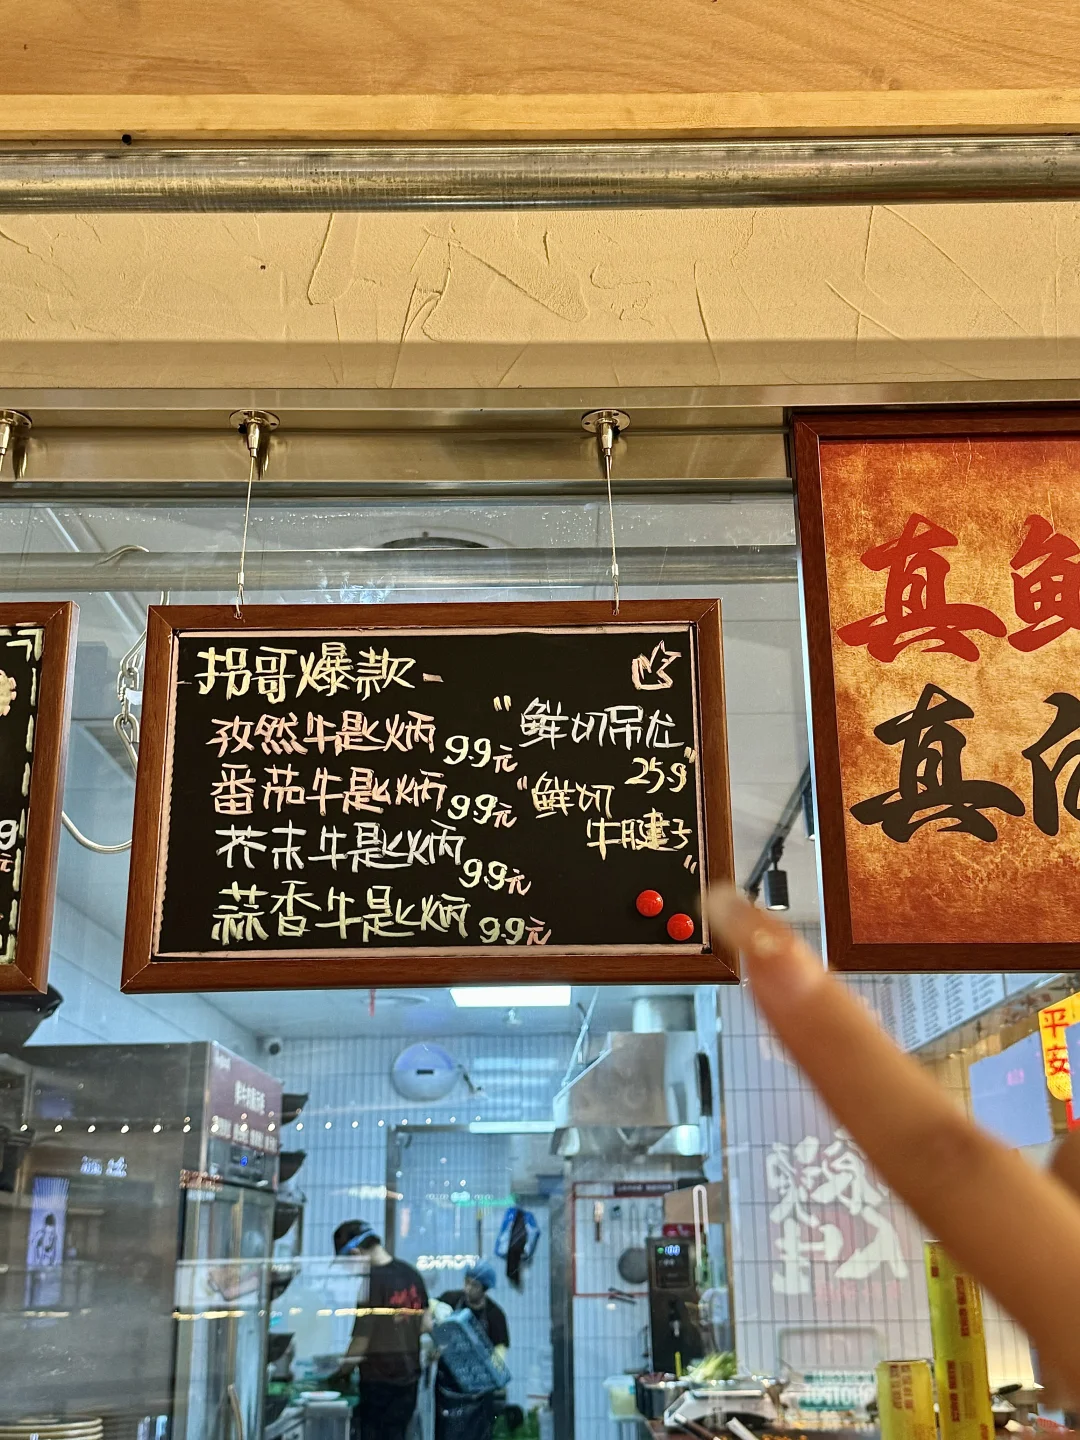 拐哥爆款-
孜然牛匙柄 9.9元
番茄牛匙柄 9.9元
芥末牛匙柄 9.9元
蒜香牛匙柄 9.9元
"鲜切吊龙"
25.9
"鲜切
牛腱子"
真鲜
真
9
元
平安